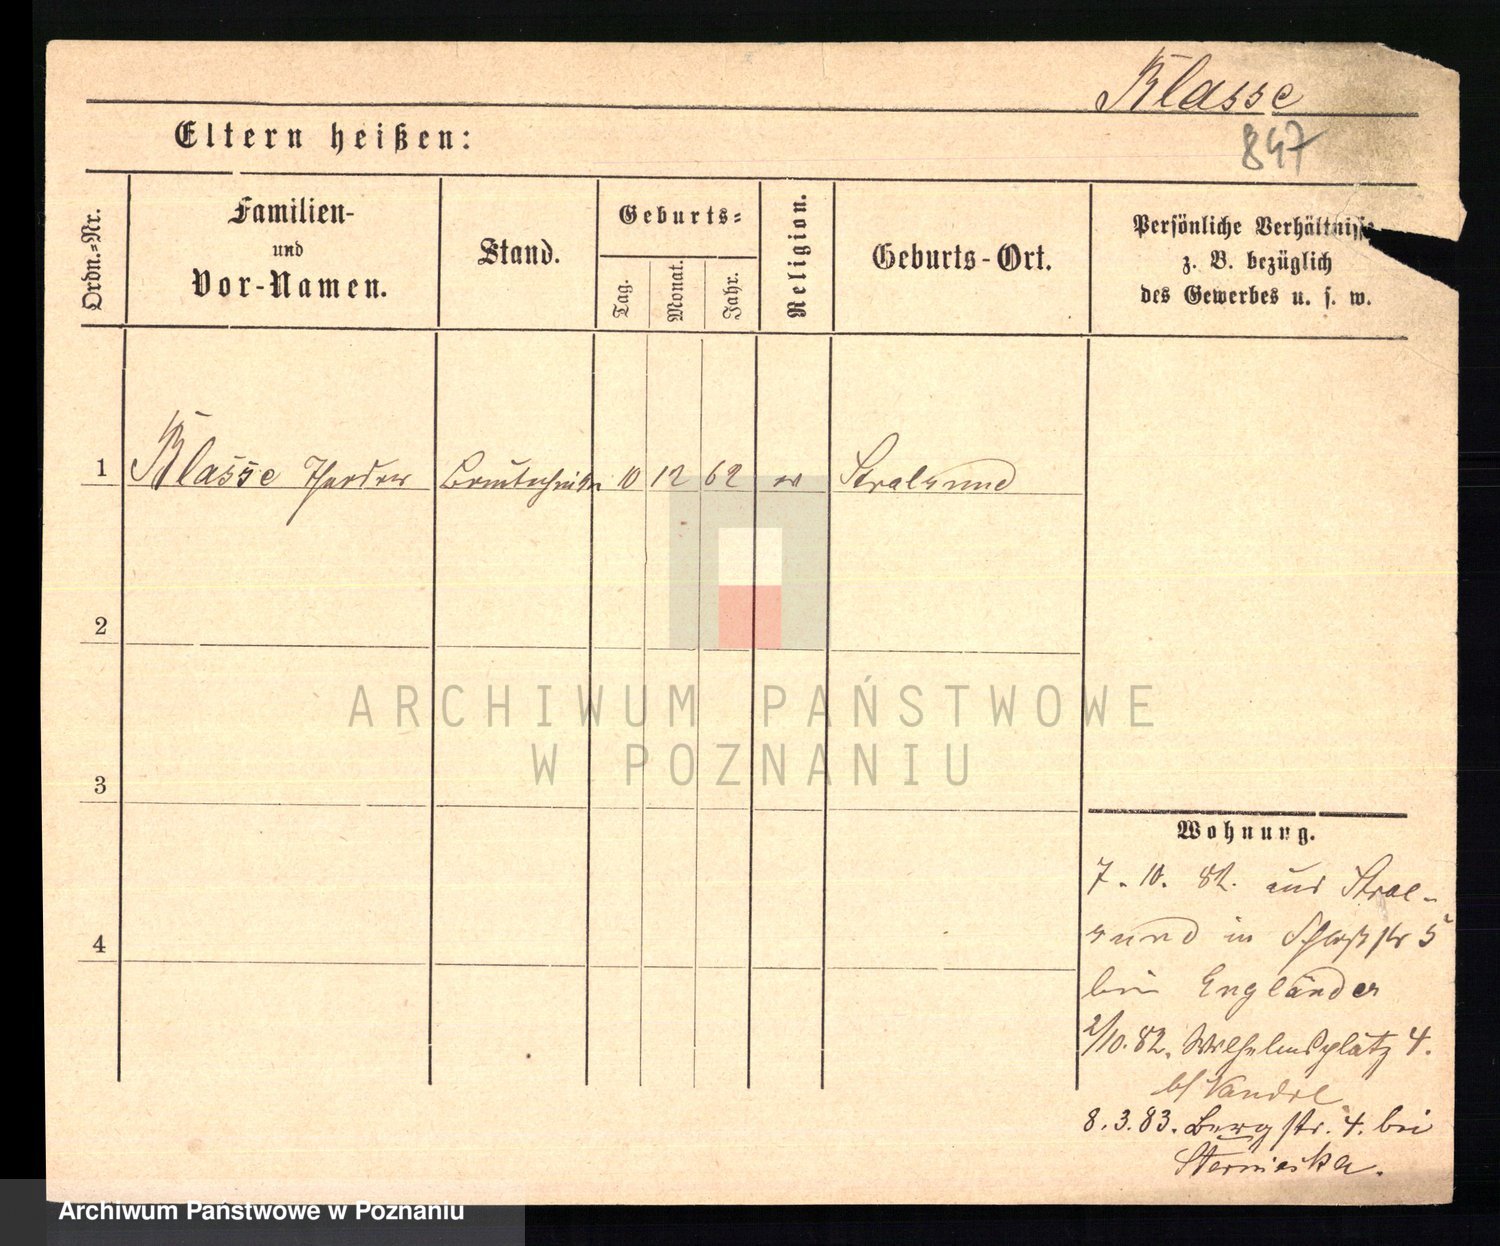 Klasse
Eltern heißen:
847
Ordn.-Nr.
Familien-
und
Vor-Namen.
Stand.
Geburts-
Tag.
Monat.
Jahr.
Religion.
Geburts-Ort.
Persönliche Verhältnisse
z. B. bezüglich
des Gewerbes u. s. w.
1 Klasse Theodor Bautechniker 10 12 62 ev Stralsund
2
3
4
ARCHIWUM PAŃSTWOWE
W POZNANIU
Wohnung.
7. 10. 82. aus Stral-
sund in Schloßstr 5
bei Engländer
2/10. 82. Wilhelmsplatz 4.
b/
8. 3. 83. Bergstr. 4. bei
Archiwum Państwowe w Poznaniu